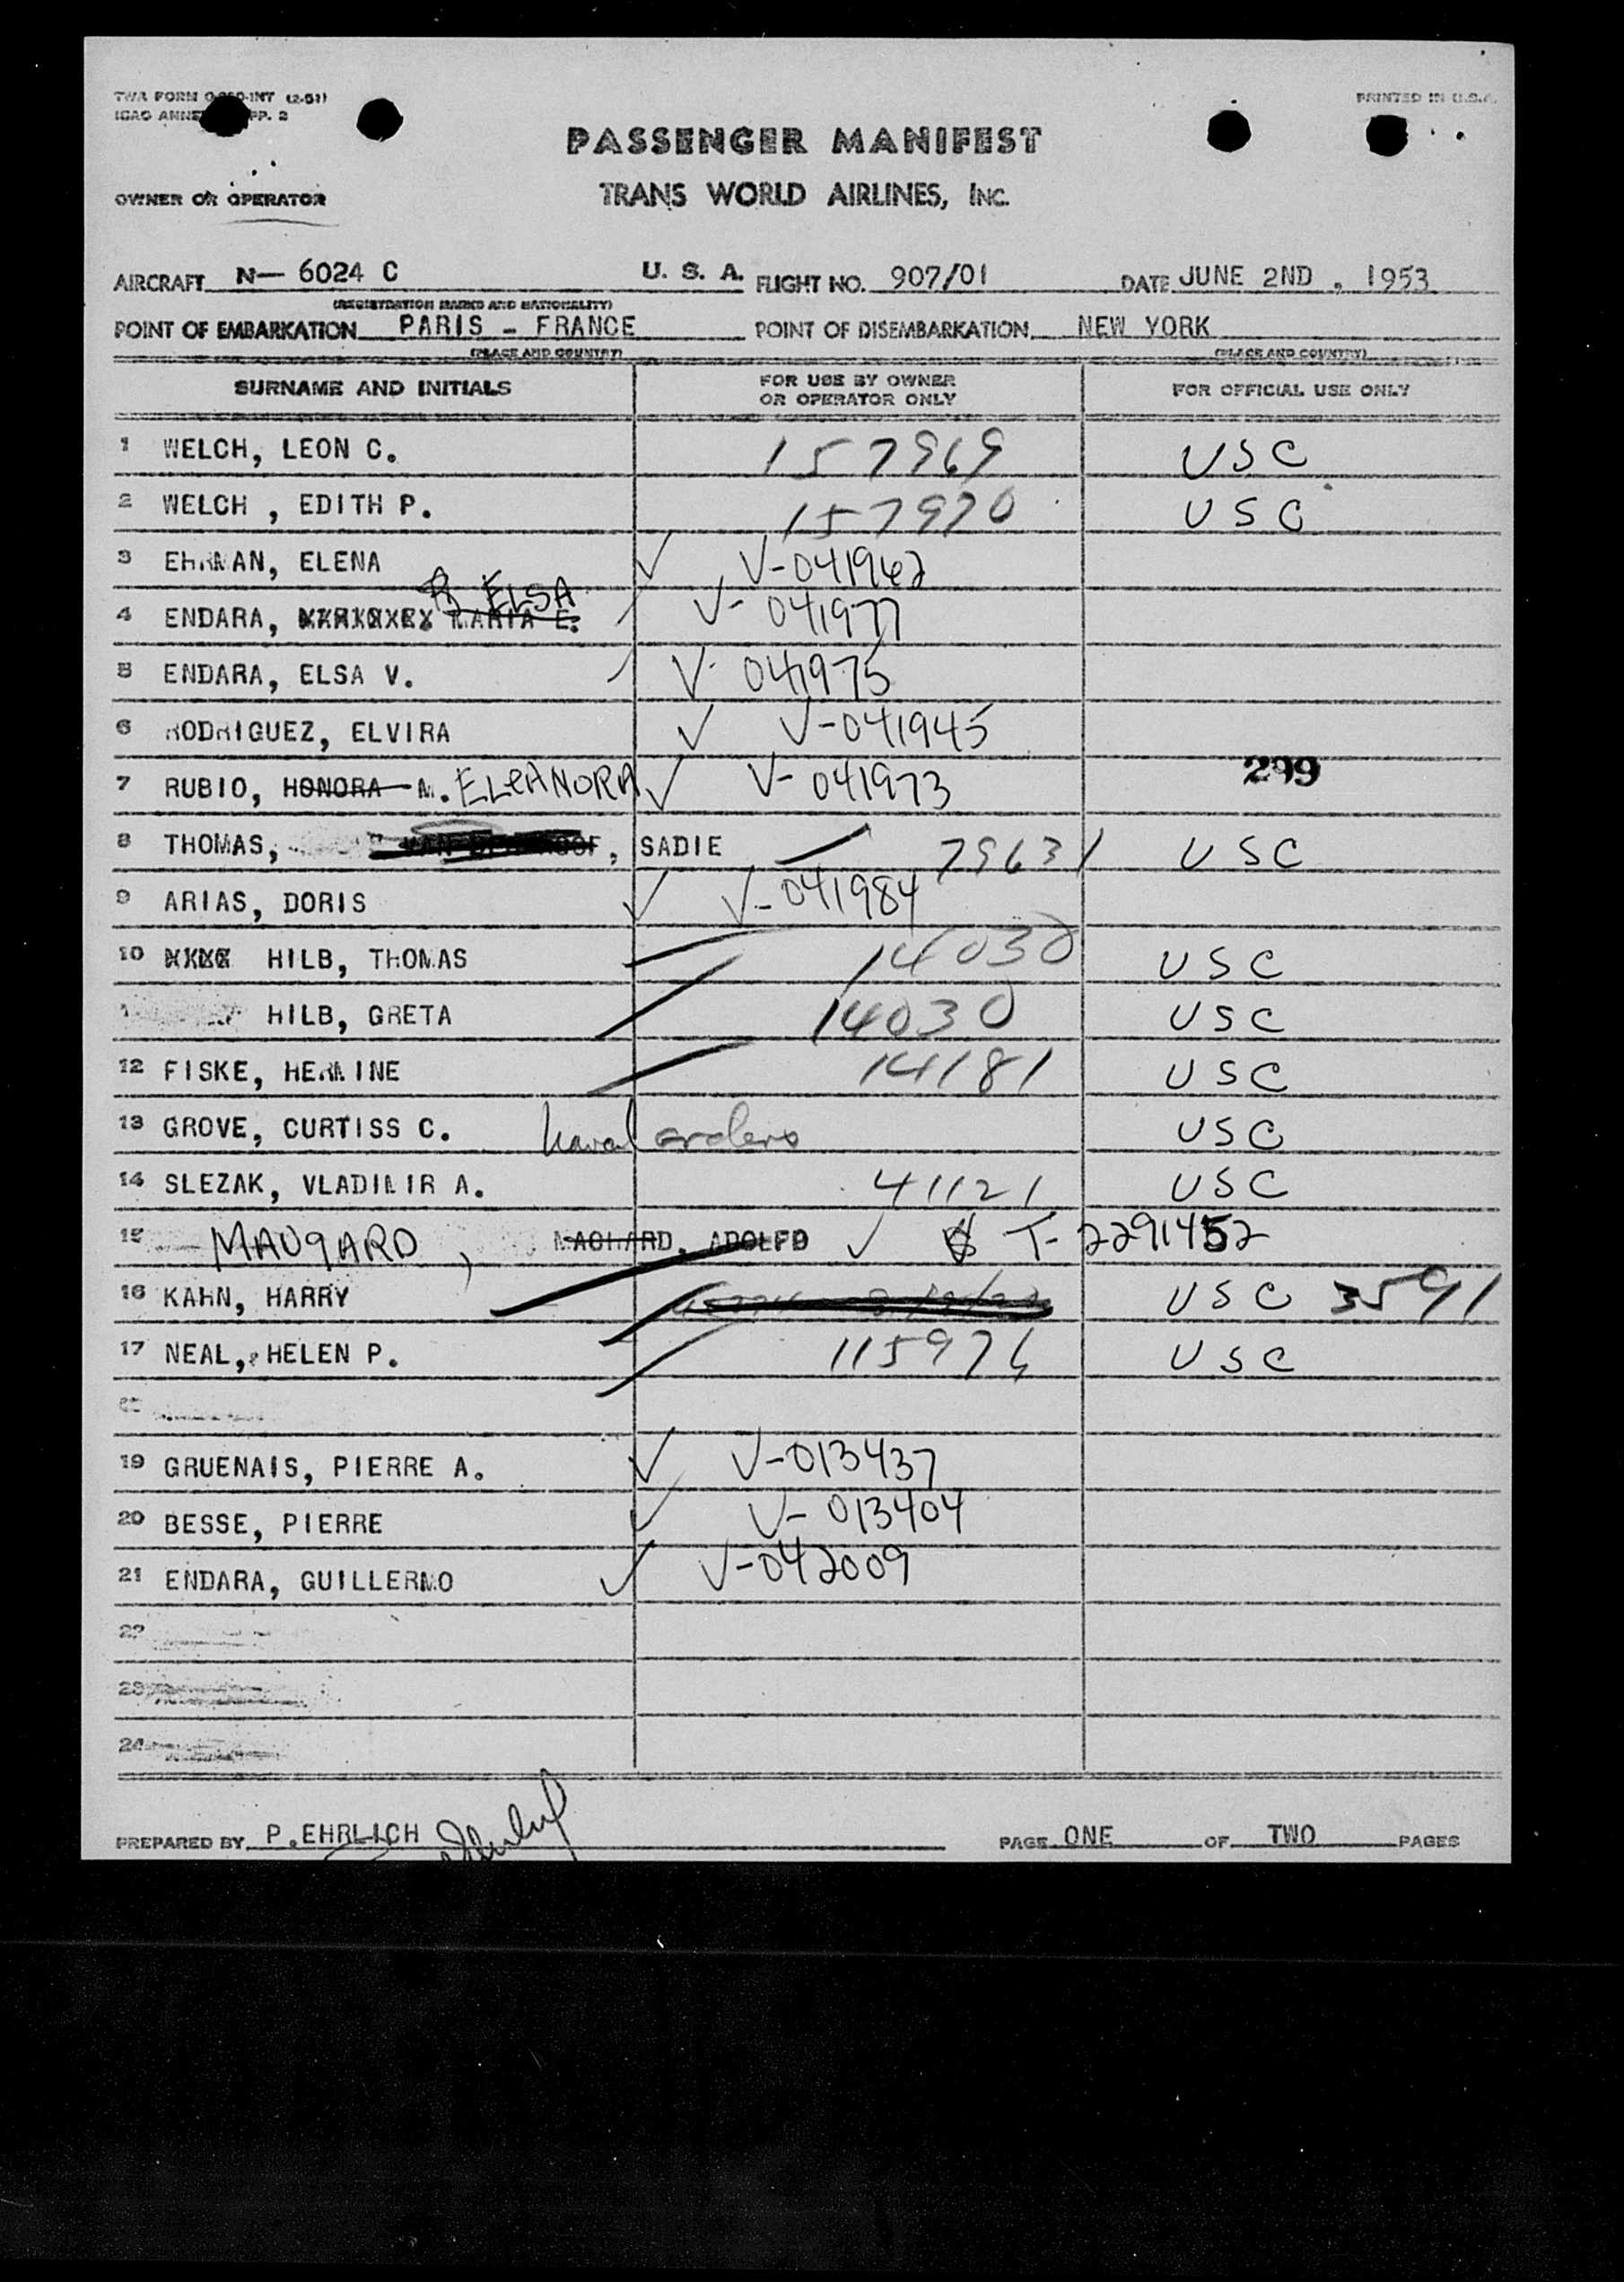 TWA FORM INT (2-51)
ICAO ANNE PP. 2
PRINTED IN U.S.A.
PASSENGER MANIFEST
OWNER OR OPERATOR
TRANS WORLD AIRLINES, INC.
AIRCRAFT N- 6024 C U. S. A. FLIGHT NO. 907/01 DATE JUNE 2ND, 1953
(REGISTRATION MARKS AND NATIONALITY)
POINT OF EMBARKATION PARIS - FRANCE POINT OF DISEMBARKATION NEW YORK
(PLACE AND COUNTRY) (PLACE AND COUNTRY)
SURNAME AND INITIALS FOR USE BY OWNER OR OPERATOR ONLY FOR OFFICIAL USE ONLY
1 WELCH, LEON C. 157969 USC
2 WELCH , EDITH P. 157970 USC
3 EHRMAN, ELENA V-041962
4 ENDARA, MARIA E. R ELSA V- 041977
5 ENDARA, ELSA V. V- 041975
6 RODRIGUEZ, ELVIRA V-041945
7 RUBIO, HONORA M. ELEANORA V- 041973 299
8 THOMAS, , SADIE 79631 USC
9 ARIAS, DORIS V-041984
10 HILB, THOMAS 14030 USC
HILB, GRETA 14030 USC
12 FISKE, HERMINE 14181 USC
13 GROVE, CURTISS C. Naval orders USC
14 SLEZAK, VLADIMIR A. 41121 USC
15 MAUGARD, MAGHARD, ADOLFO T-2291452
16 KAHN, HARRY USC 3591
17 NEAL, HELEN P. 115976 USC
19 GRUENAIS, PIERRE A. V-013437
20 BESSE, PIERRE V- 013404
21 ENDARA, GUILLERMO V-042009
22
23
24
PREPARED BY P.EHRLICH PAGE ONE OF TWO PAGES